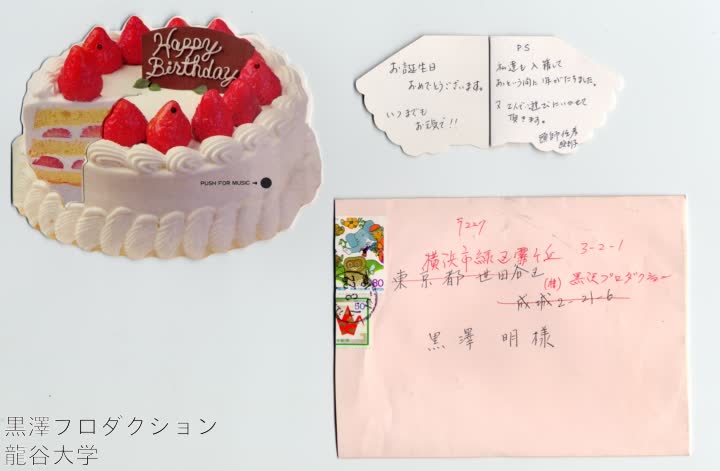 Happy
Birthday
PUSH FOR MUSIC →
お誕生日
おめでとうございます。
いつまでも
お元気で!!
P.S
私達も入籍して
あという間に1年がたちました。
頂きます。
〒227
横浜市緑区霧ケ丘 3-2-1
東京都世田谷区
(株)黒沢プロダクション
成城2-21-6
黒澤 明様
80
60
黒澤フロダクション
龍谷大学